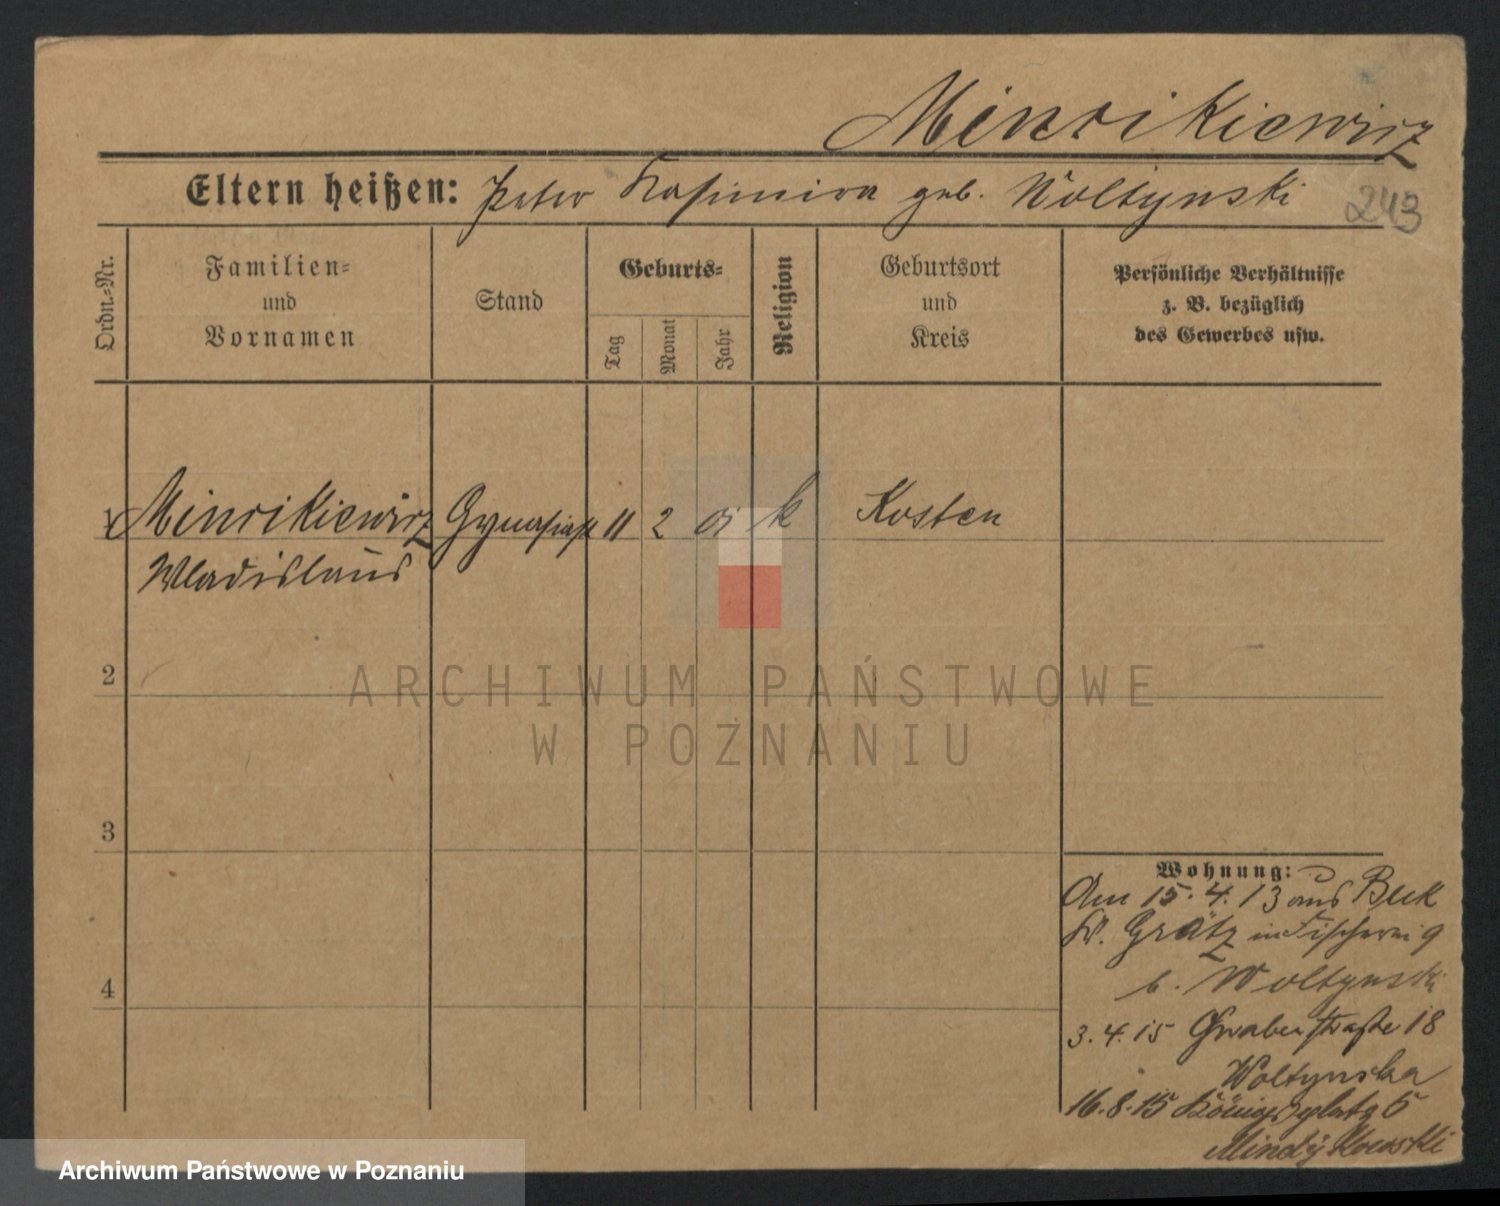 Minrikiewicz
Eltern heißen: Peter Kasimira geb. Woltynski
243
Ordn.-Nr.
Familien-
und
Vornamen
Stand
Geburts-
Tag
Monat
Jahr
Religion
Geburtsort
und
Kreis
Persönliche Verhältnisse
z. B. bezüglich
des Gewerbes usw.
1 Minrikiewicz Gymnasiast 11 2 01 k Kosten
Wladislaus
2
3
4
Wohnung:
Am 15.4.13 aus Buk
Kr. Grätz in Fischerei 9
b. Woltynski
3.4.15 Grabenstraße 18
Woltynska
16.8.15 Königsplatz 5
Mindykowski
ARCHIWUM PAŃSTWOWE
W POZNANIU
Archiwum Państwowe w Poznaniu